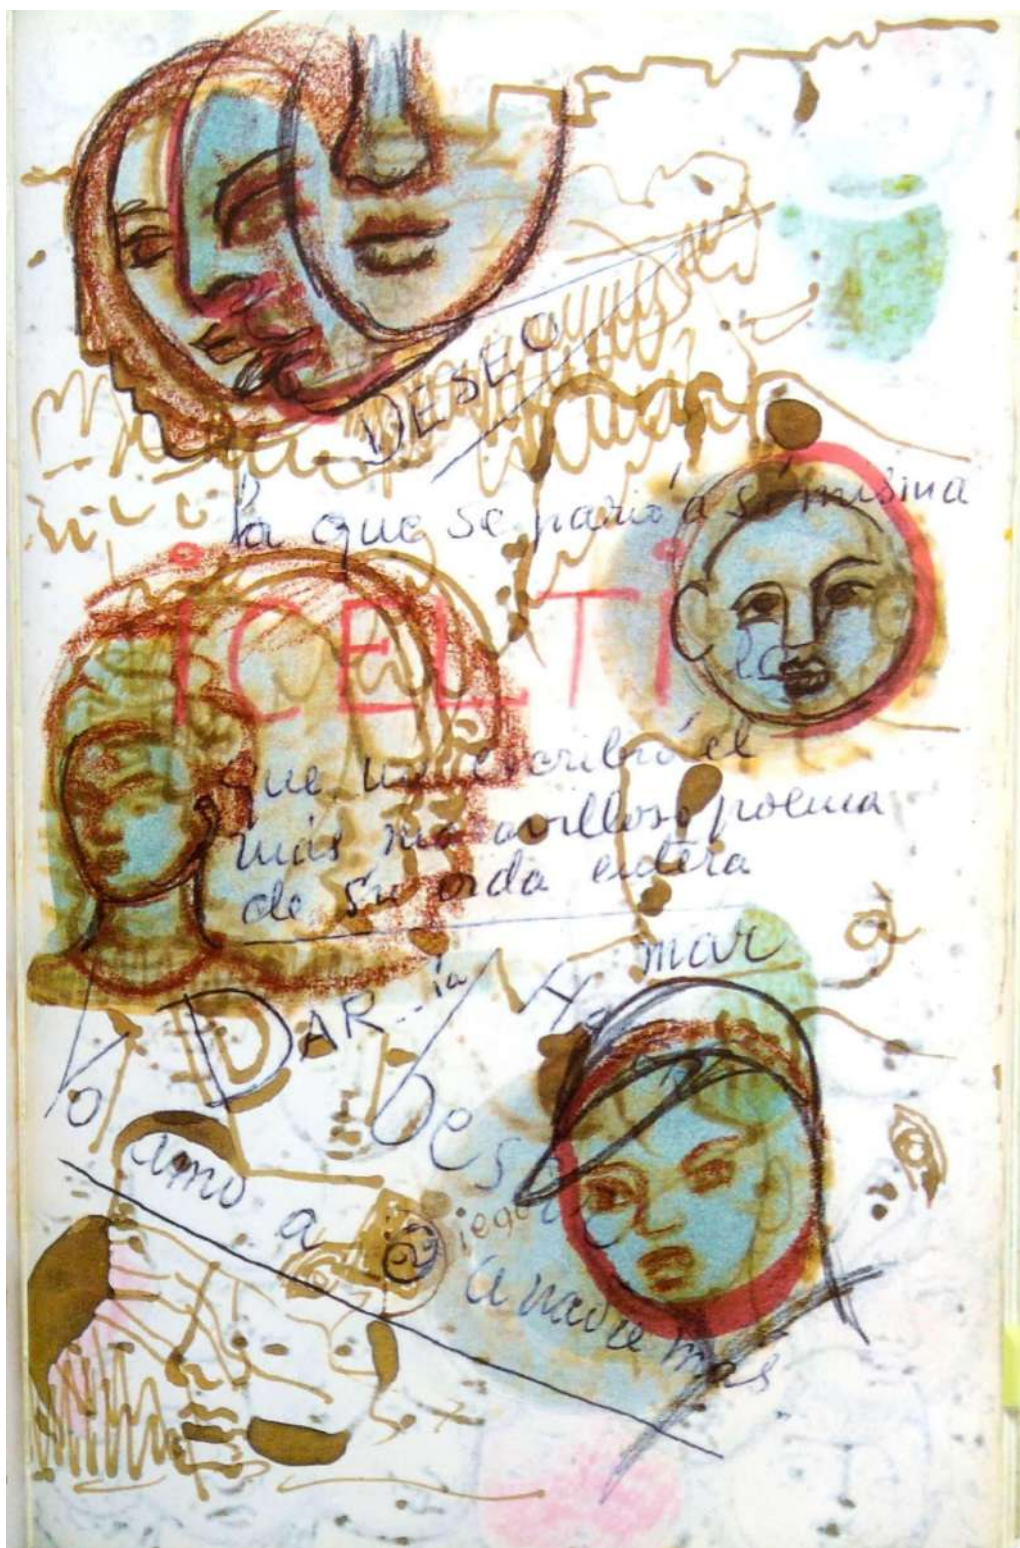 DESEO
la que se parió a sí misma
ICELTI
que me escribió el
más maravilloso poema
de su vida entera
Yo DARía
mar
amo a Diego
a nadie más